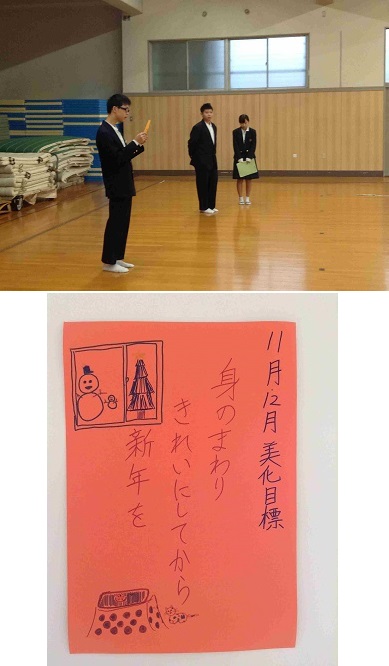 11月・12月 美化目標
身のまわり
きれいにしてから
新年を